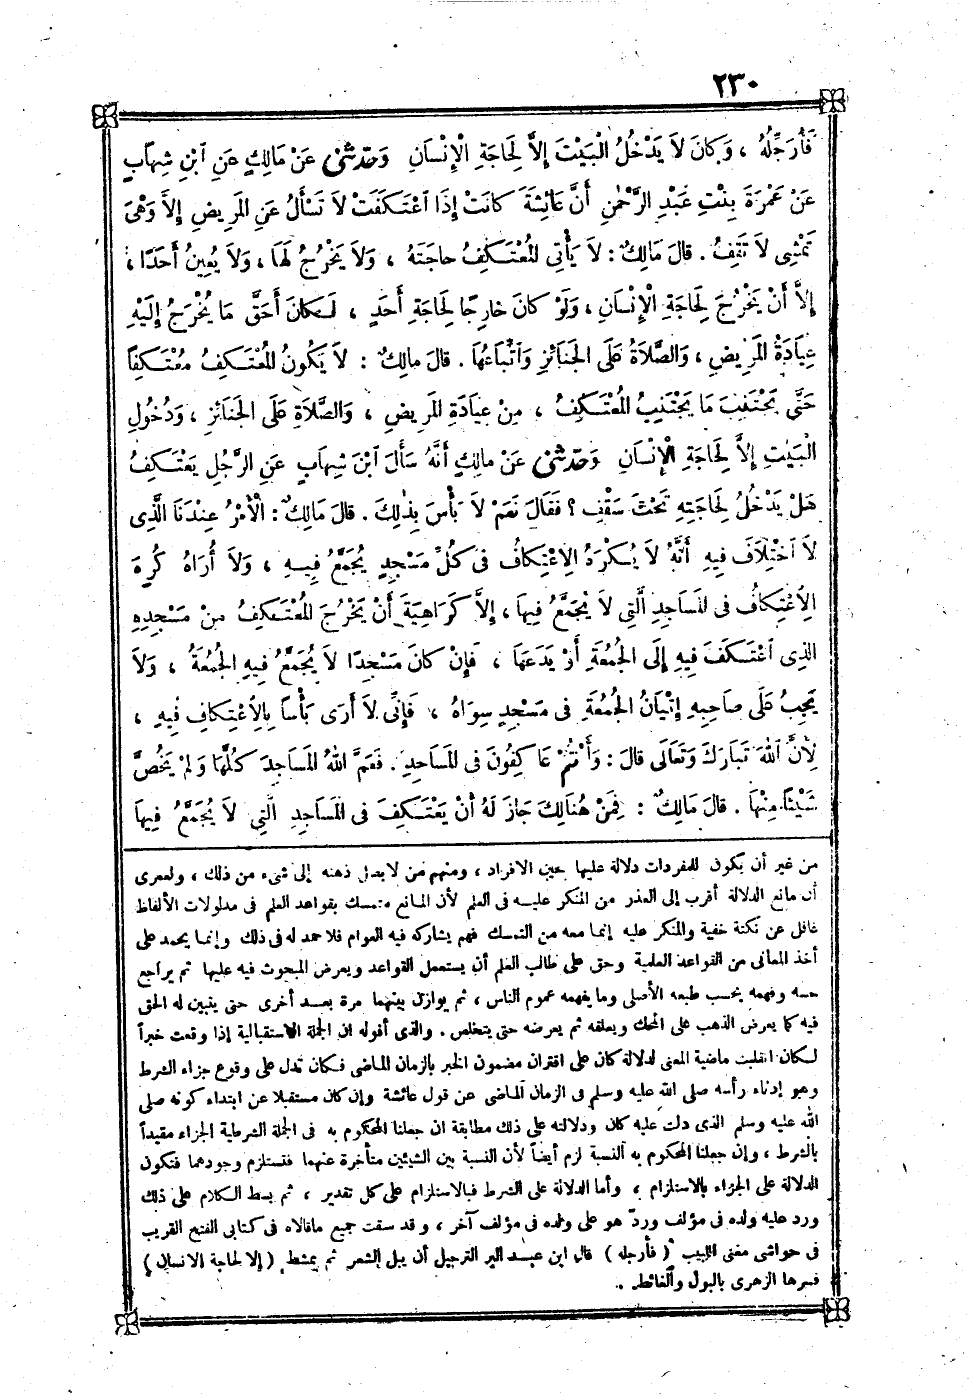 ٢٣٠
فَأُرَجِّلُهُ ، وَكَانَ لاَ يَدْخُلُ الْبَيْتَ إِلاَّ لِحَاجَةِ الْإِنْسَانِ وَحَدَّثَنِي عَنْ مَالِكٍ عَنِ ابْنِ شِهَابٍ
عَنْ عَمْرَةَ بِنْتِ عَبْدِ الرَّحْمٰنِ أَنَّ عَائِشَةَ كَانَتْ إِذَا اعْتَكَفَتْ لاَ تَسْأَلُ عَنِ المَرِيضِ إِلاَّ وَهْىَ
تَمْشِى لاَ تَقِفُ . قَالَ مَالِكٌ : لاَ يَأْتِى المُعْتَكِفُ حَاجَتَهُ ، وَلاَ يَخْرُجُ لَهَا ، وَلاَ يُعِينُ أَحَدًا ،
إِلاَّ أَنْ يَخْرُجَ لِحَاجَةِ الْإِنْسَانِ ، وَلَوْ كَانَ خَارِجًا لِحَاجَةِ أَحَدٍ ، لَكَانَ أَحَقَّ مَا يُخْرَجُ إِلَيْهِ
عِيَادَةُ المَرِيضِ ، وَالصَّلاَةُ عَلَى الجَنَائِزِ وَاتِّبَاعُهَا . قَالَ مَالِكٌ : لاَ يَكُونُ المُعْتَكِفُ مُعْتَكِفًا
حَتَّى يَجْتَنِبَ مَا يَجْتَنِبُ المُعْتَكِفُ ، مِنْ عِيَادَةِ المَرِيضِ ، وَالصَّلاَةِ عَلَى الجَنَائِزِ ، وَدُخُولِ
الْبَيْتِ إِلاَّ لِحَاجَةِ الْإِنْسَانِ وَحَدَّثَنِي عَنْ مَالِكٍ أَنَّهُ سَأَلَ ابْنَ شِهَابٍ عَنِ الرَّجُلِ يَعْتَكِفُ
هَلْ يَدْخُلُ لِحَاجَتِهِ تَحْتَ سَقْفٍ ؟ فَقَالَ نَعَمْ لاَ بَأْسَ بِذٰلِكَ . قَالَ مَالِكٌ : الْأَمْرُ عِنْدَنَا الَّذِى
لاَ اخْتِلاَفَ فِيهِ أَنَّهُ لاَ يُكْرَهُ الِاعْتِكَافُ فِى كُلِّ مَسْجِدٍ يُجَمَّعُ فِيهِ ، وَلاَ أُرَاهُ كُرِهَ
الِاعْتِكَافُ فِى المَسَاجِدِ الَّتِى لاَ يُجَمَّعُ فِيهَا ، إِلاَّ كَرَاهِيَةَ أَنْ يَخْرُجَ المُعْتَكِفُ مِنْ مَسْجِدِهِ
الذِى اعْتَكَفَ فِيهِ إِلَى الجُمُعَةِ أَوْ يَدَعَهَا ، فَإِنْ كَانَ مَسْجِدًا لاَ يُجَمَّعُ فِيهِ الجُمُعَةُ ، وَلاَ
يَجِبُ عَلَى صَاحِبِهِ إِتْيَانُ الجُمُعَةِ فِى مَسْجِدٍ سِوَاهُ ، فَإِنِّى لاَ أَرَى بَأْسًا بِالِاعْتِكَافِ فِيهِ ،
لِأَنَّ اللّٰهَ تَبَارَكَ وَتَعَالَى قَالَ : وَأَنْتُمْ عَاكِفُونَ فِى المَسَاجِدِ . فَعَمَّ اللّٰهُ المَسَاجِدَ كُلَّهَا وَلَمْ يَخُصَّ
شَيْئًا مِنْهَا . قَالَ مَالِكٌ : فَمِنْ هُنَالِكَ جَازَ لَهُ أَنْ يَعْتَكِفَ فِى المَسَاجِدِ الَّتِى لاَ يُجَمَّعُ فِيهَا
من غير أن يكون للمفردات دلالة عليها حين الافراد ، ومنهم من لا يعدل ذهنه إلى شىء من ذلك ، ولعمرى
أن مانع الدلالة أقرب إلى العذر من المنكر عليه فى العلم لأن المانع متمسك بقواعد العلم فى مدلولات الألفاظ
غافل عن نكتة خفية والمنكر عليه إنما معه من التمسك فهم يشاركه فيه العوام فلا حمد له فى ذلك وإنما يحمد على
أخذ المعانى من القواعد العلمية وحق على طالب العلم أن يستعمل القواعد ويعرض المبحوث فيه عليها ثم يراجع
حسه وفهمه بحسب طبعه الأصلى وما يفهمه عموم الناس ، ثم يوازن بينهما مرة بعد أخرى حتى يتبين له الحق
فيه كما يعرض الذهب على المحك ويعلقه ثم يعرضه حتى يتخلص . والذى أقوله ان الجملة الاستقبالية إذا وقعت خبراً
لكان انقلبت ماضية المعنى لدلالة كان على اقتران مضمون الخبر بالزمان الماضى فكان تدل على وقوع جزاء الشرط
وهو إدناء رأسه صلى الله عليه وسلم فى الزمان الماضى عن قول عائشة وإن كان مستقبلا عن ابتداء كونه صلى
الله عليه وسلم الذى دلت عليه كان ودلالته على ذلك مطابقة ان جعلنا المحكوم به فى الجملة الشرطية الجزاء مقيداً
بالشرط ، وإن جعلنا المحكوم به النسبة لزم أيضاً لأن النسبة بين الشيئين متأخرة عنهما فتستلزم وجودهما فتكون
الدلالة على الجزاء بالاستلزام ، وأما الدلالة على الشرط فبالاستلزام على كل تقدير ، ثم بسط الكلام على ذلك
ورد عليه ولده فى مؤلف وردّ هو على ولده فى مؤلف آخر ، وقد سقت جميع ماقالاه فى كتابى الفتح القريب
فى حواشى مغنى اللبيب ( فأرجله ) قال ابن عبد البر الترجيل أن يبل الشعر ثم يمشط ( إلا لحاجة الانسان )
فسرها الزهرى بالبول والغائط .